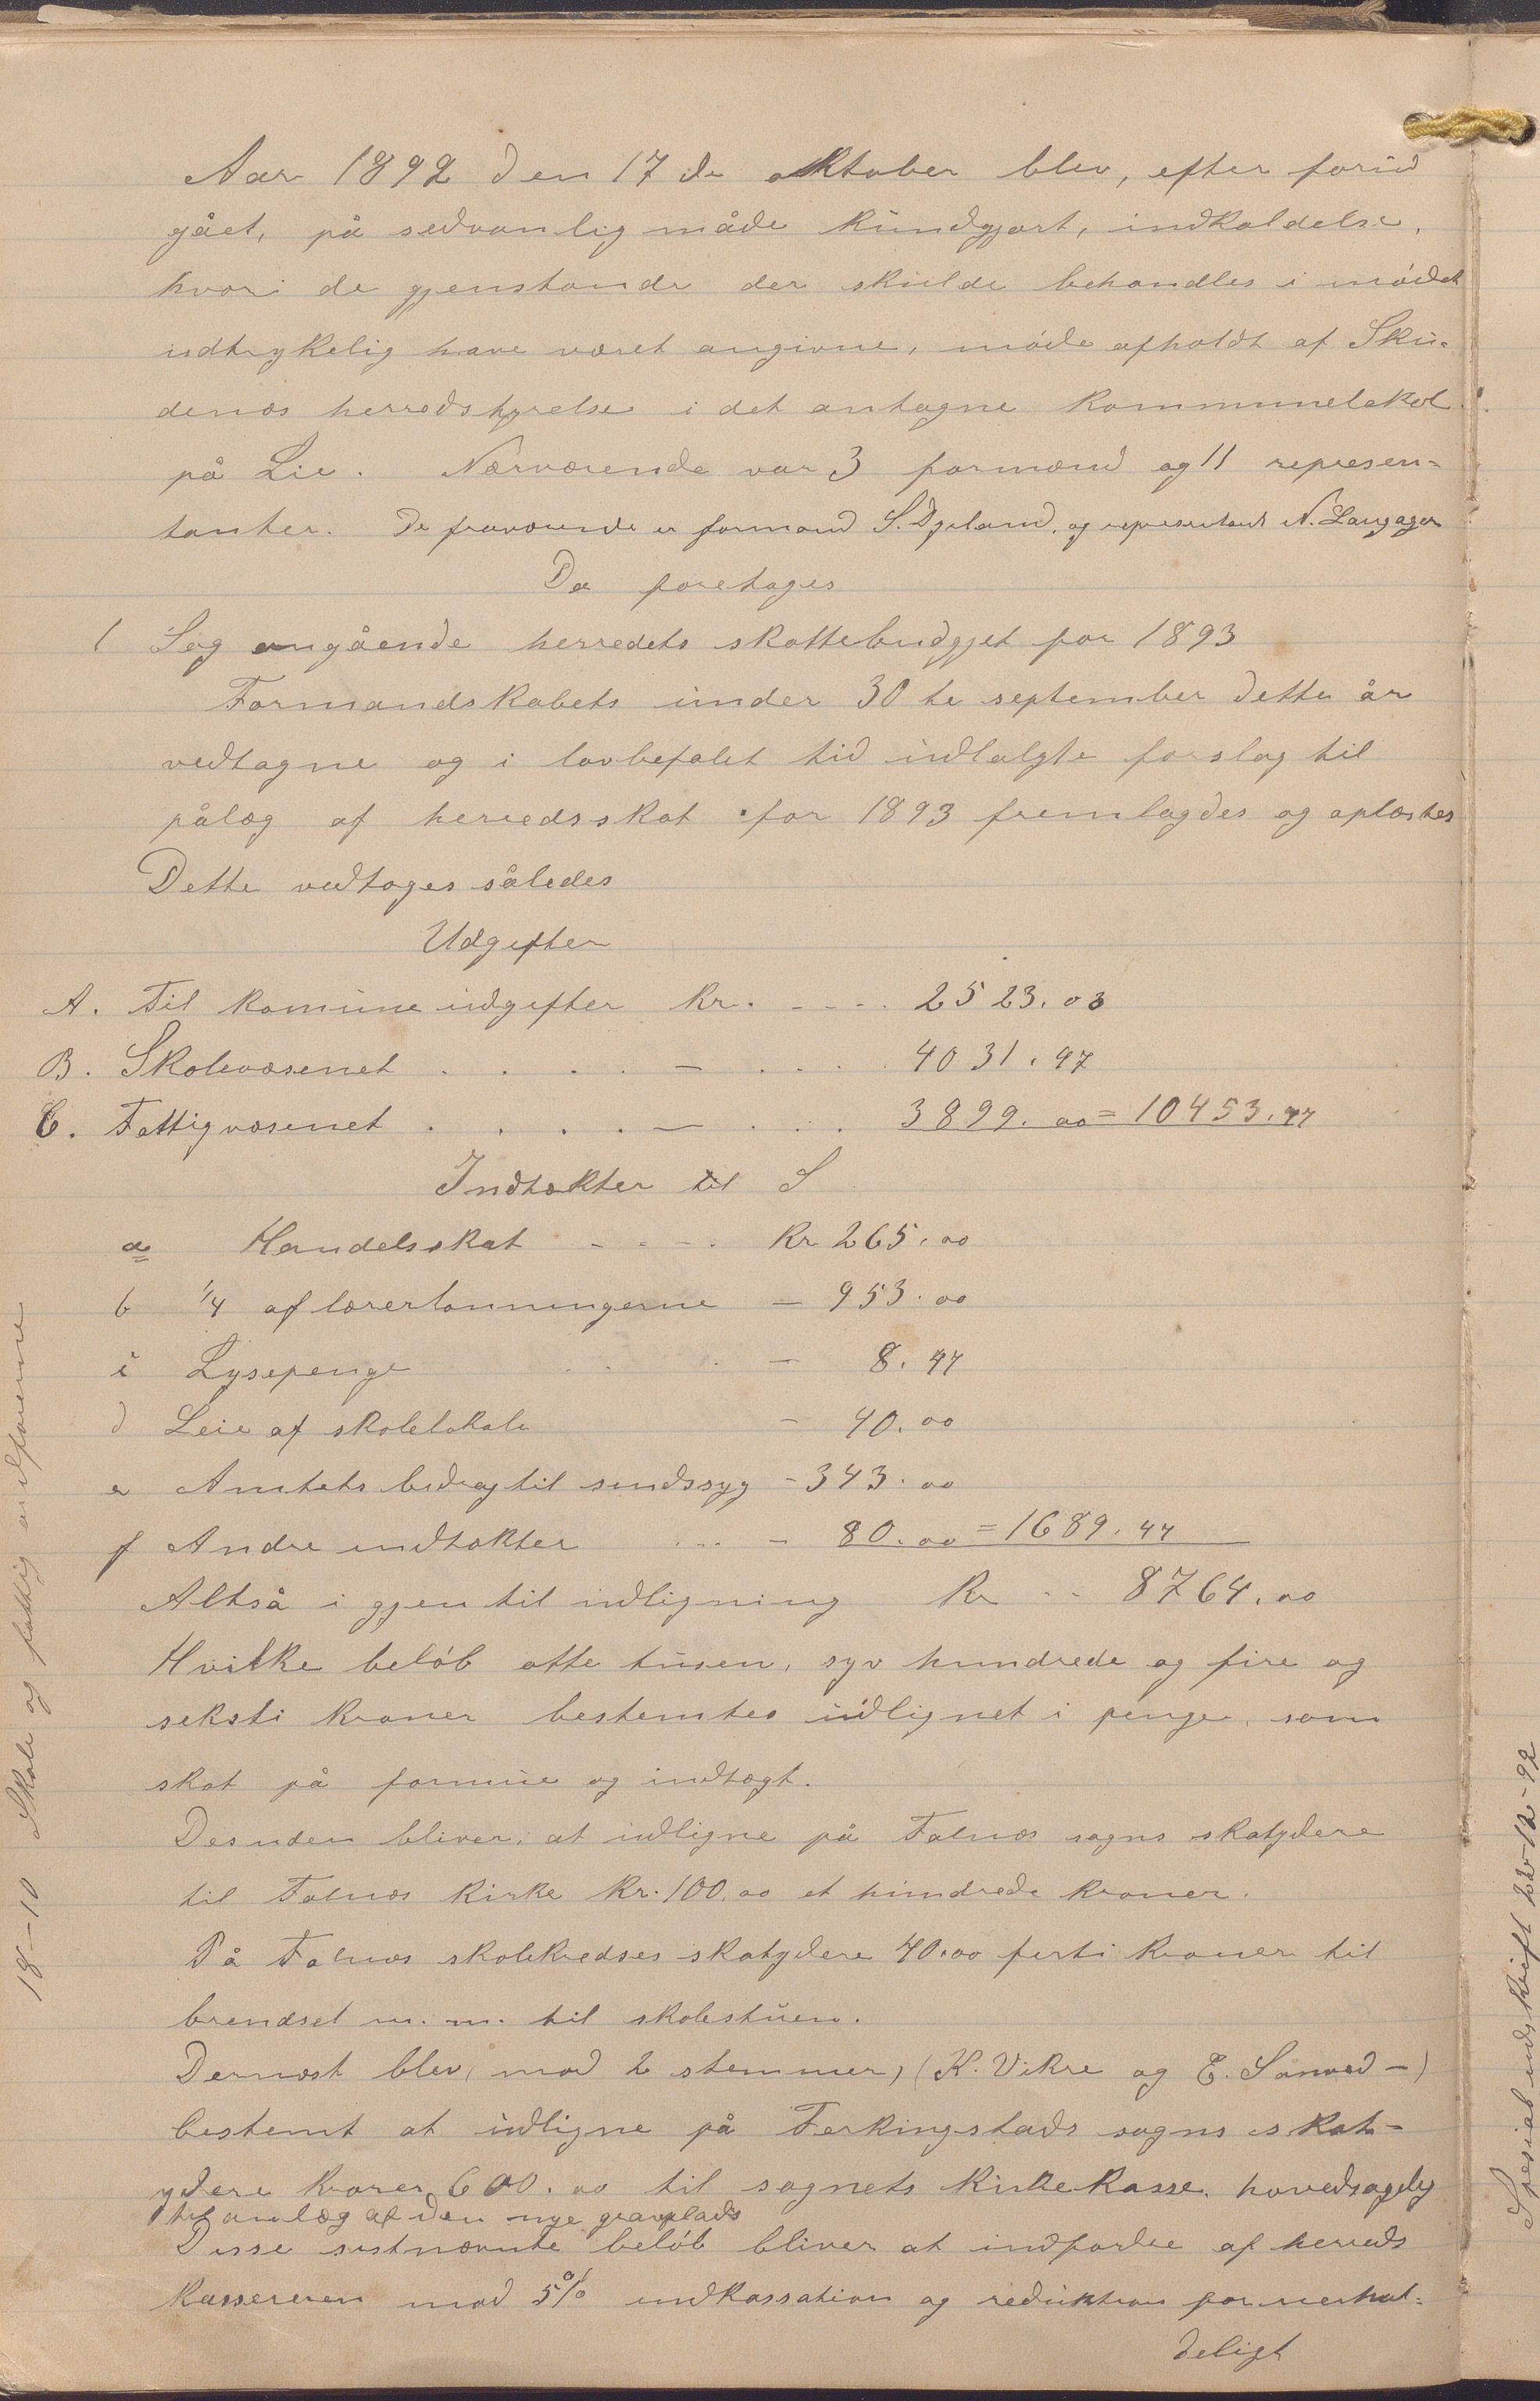 Aar 1892 den 17de oktober blev, efter forud
gået, på sedvanlig måde kundgjort, indkaldelse,
hvori de gjenstande der skulde behandles i mödet
udtrykelig have været angivne, möde afholdt af Sku-
denæs herredstyrelse i det antagne kommunelokal
på Lie. Nærværende var 3 formænd og 11 represen-
tanter. De fraværende er formand S. Dyeland, og representant N. Langager
Da foretages
1 Sag angående herredets skattebudgjet for 1893
Formandskabets under 30te september dette år
vedtagne og i lovbefalet tid udlalgte forslag til
pålæg af herredsskat for 1893 fremlagdes og oplæstes
Dette vedtoges således
Udgifter
A. Til komuneudgifter kr. - - - - 2523.03
B. Skolevæsenet . . . . - . . . . 4031.97
C. Fattigvæsenet . . . . - . . . 3899.00 = 10453.44
Indtækter til S
a Handelsskat - - - - Kr 265.00
b 1/4 af lærerlønningerne - 953.00
c Lysepenge . . . - 8.44
d Leie af skolelokale - 40.00
e Amtets bidrag til sindssyg - 343.00
f Andre indtækter ... - 80.00 = 1689.44
Altså igjen til udligning Kr - - 8764.00
Hvilke belöb otte tusen, syv hundrede og fire og
seksti kroner bestemtes udlignet i penge, som
skat på formue og indtægt.
Desuden bliver at udligne på Falnæs sogns skatydere
til Falnæs kirke Kr. 100.00 et hundrede kroner.
På Falnæs skolekredses skatydere 40.00 førti kroner til
brendsel m. m. til skolestuen.
Dernæst blev, mod 2 stemmer, (K. Vikre og E. Sanved -)
bestemt at udligne på Ferkingstads sogns skat-
ydere kroner 600.00 til sognets kirkekasse, hovedsagelig
til anlæg af den nye gravplads
Disse sistnævnte belöb bliver at indfordre af herreds
kassereren mod 5% indkassation og reduktion fornerhol-
deligt
18-10 Skole og fattig
Spesial udskrift 22-12-92